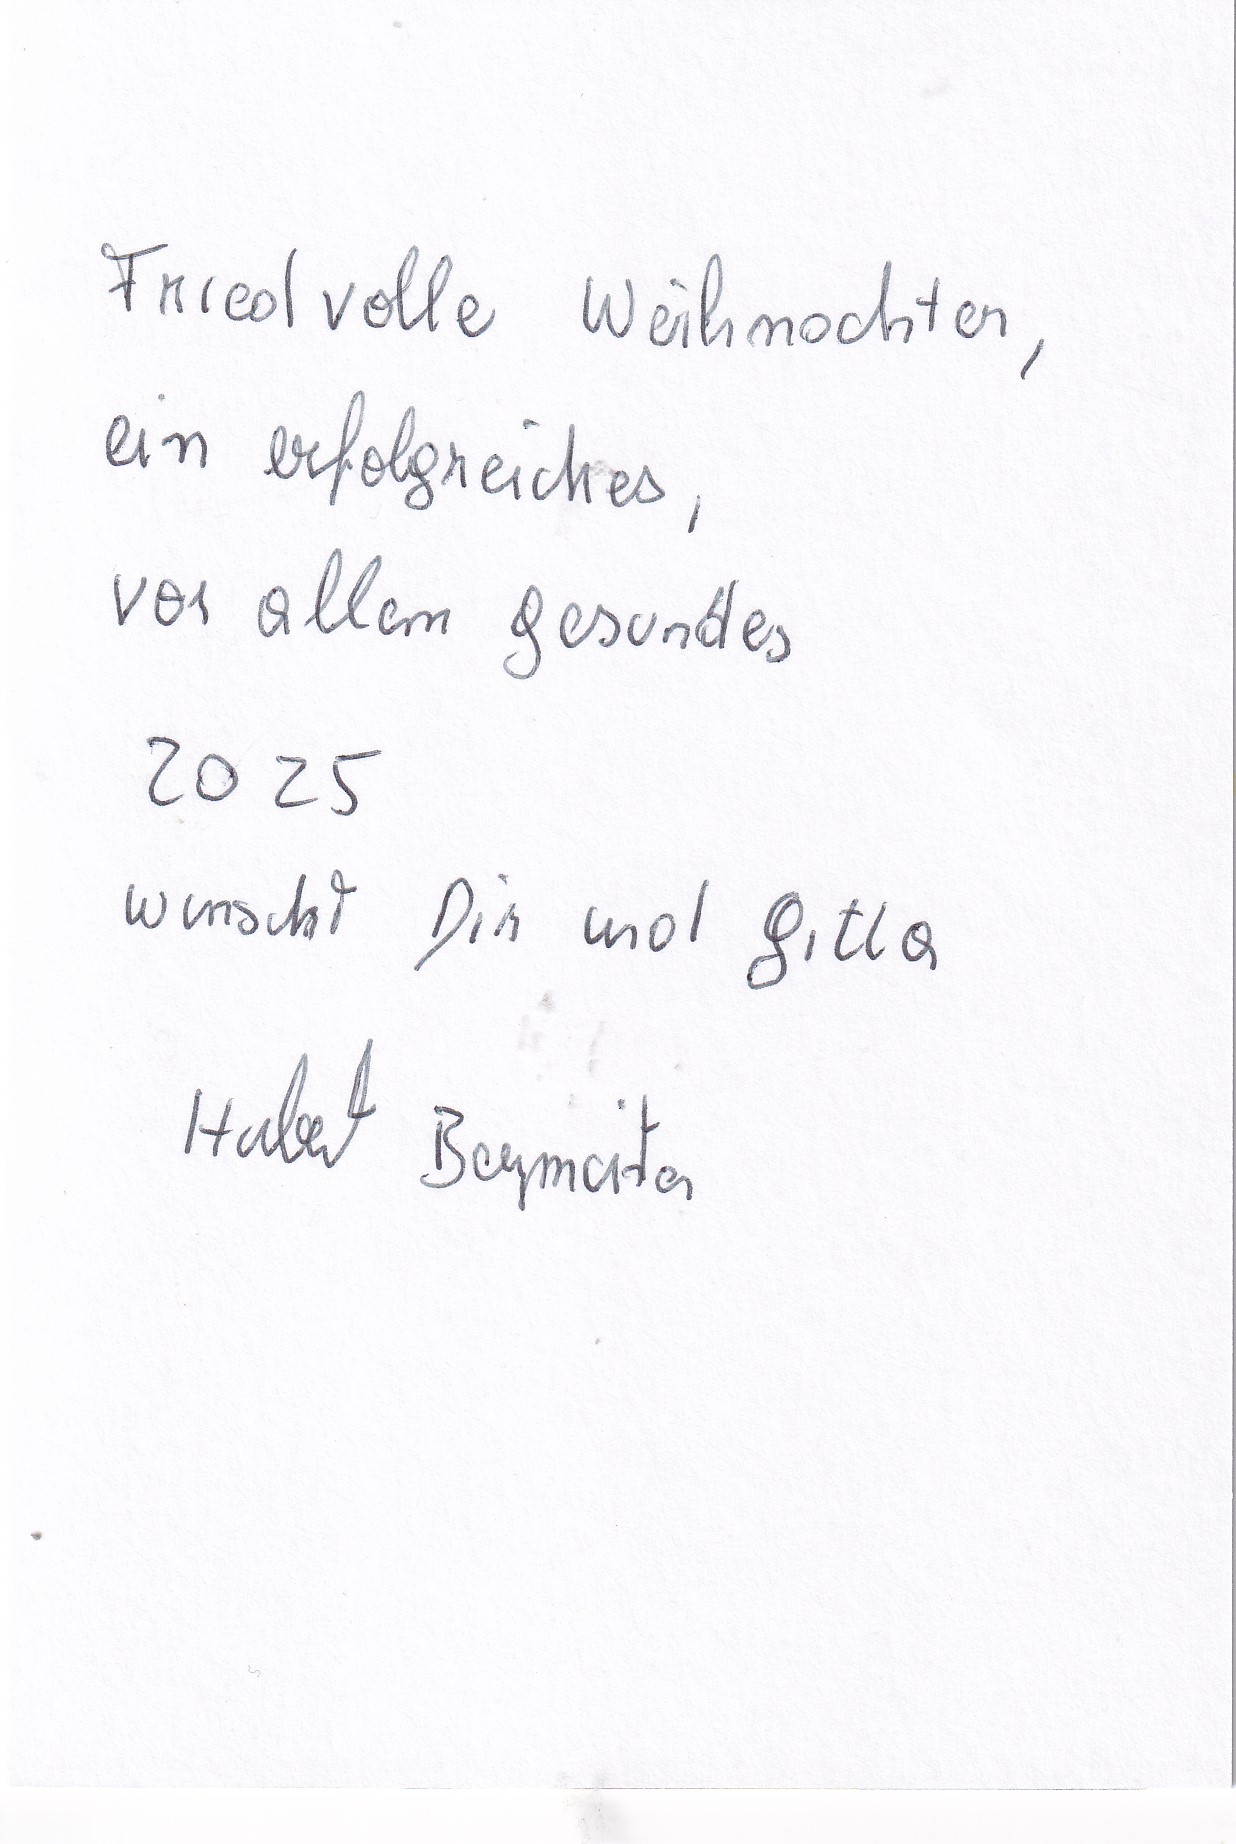 Friedvolle Weihnachten,
ein erfolgreiches,
vor allem gesundes
2025
wunscht Dir und Gitta
Hubert